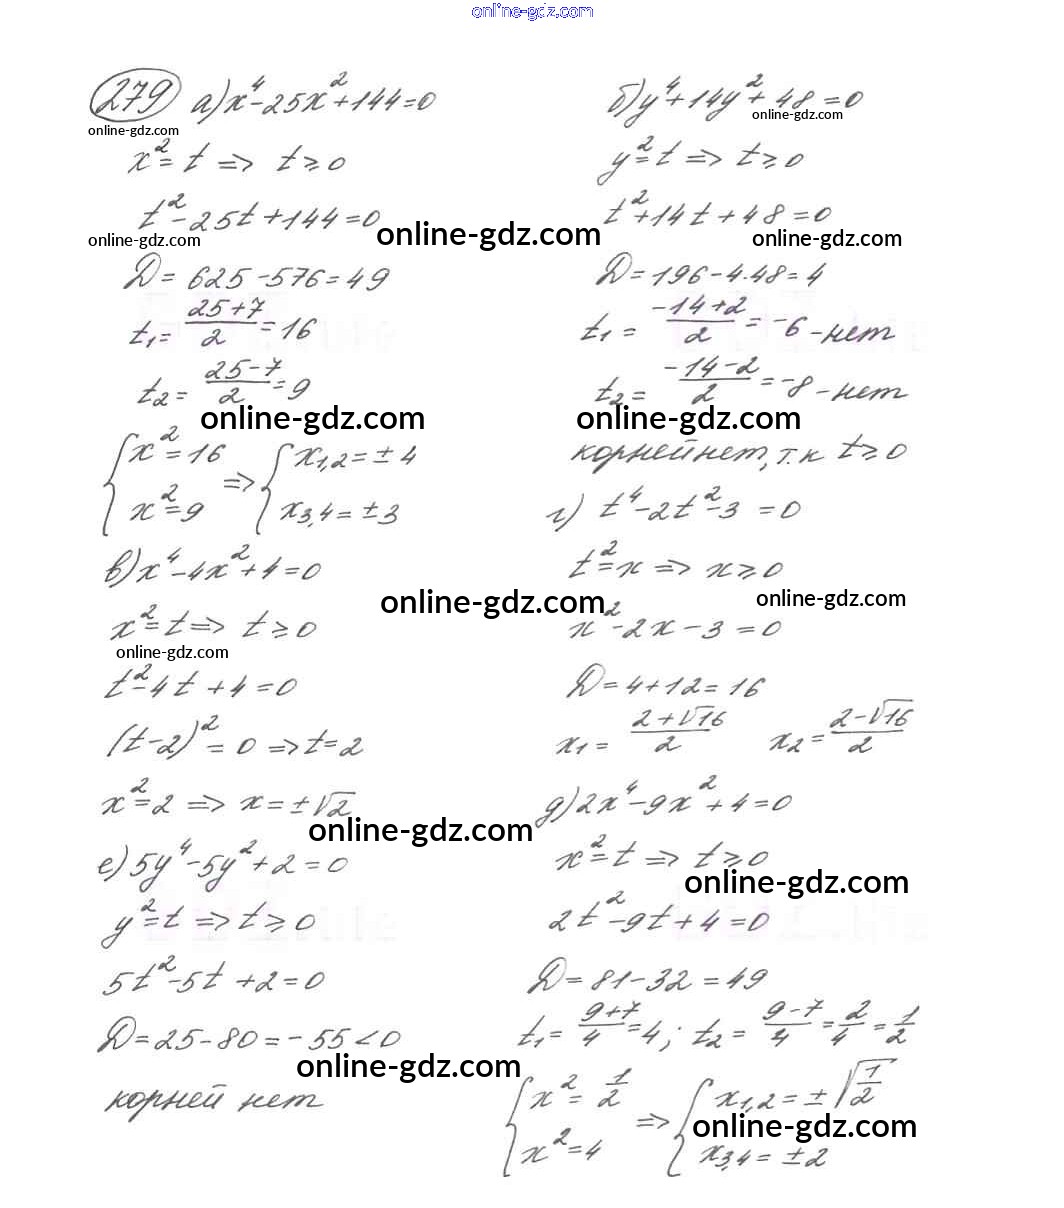 online-gdz.com
279 а) x⁴-25x²+144=0
online-gdz.com
x²=t => t≥0
t²-25t+144=0
online-gdz.com
online-gdz.com
D=625-576=49
t₁=(25+7)/2=16
t₂=(25-7)/2=9
online-gdz.com
{x²=16 => {x₁,₂=±4
{x²=9 {x₃,₄=±3
в) x⁴-4x²+4=0
online-gdz.com
x²=t => t≥0
online-gdz.com
t²-4t+4=0
(t-2)²=0 => t=2
x²=2 => x=±√2
online-gdz.com
е) 5y⁴-5y²+2=0
y²=t => t≥0
5t²-5t+2=0
D=25-80=-55<0
online-gdz.com
корней нет
б) y⁴+14y²+48=0
online-gdz.com
y²=t => t≥0
t²+14t+48=0
online-gdz.com
D=196-4·48=4
t₁=(-14+2)/2=-6-нет
t₂=(-14-2)/2=-8-нет
online-gdz.com
корней нет, т.к t≥0
г) t⁴-2t²-3=0
t²=x => x≥0
online-gdz.com
x²-2x-3=0
D=4+12=16
x₁=(2+√16)/2 x₂=(2-√16)/2
д) 2x⁴-9x²+4=0
x²=t => t≥0
online-gdz.com
2t²-9t+4=0
D=81-32=49
t₁=(9+7)/4=4; t₂=(9-7)/4=2/4=1/2
{x²=1/2 => {x₁,₂=±√(1/2)
online-gdz.com
{x²=4 {x₃,₄=±2